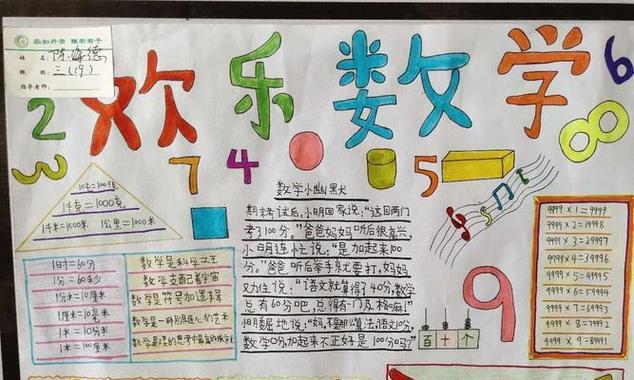 品如丹青 雅若君子
姓名:
班级: 三(19)
指导老师:
欢乐数学
2
3
7
4
5
6
8
9
1千克=1000克
1千米=1000米 1公里=1000米
1时=60分
1分=60秒
1分米=10厘米
1厘米=10毫米
1米=10分米
1米=100厘米
数学是科学之王
数学支配着宇宙
数学是符号加逻辑
数学是一种别具匠心的艺术
数学小幽默
期末考试后,小明回家说:"这回两门
考了100分。"爸爸妈妈听后很高兴,
小明连忙说:"是加起来100
分。"爸爸听后举手就要打,妈妈
又力住说:"语文就算得了40分,数学
总有60分吧,总得有一门及格的嘛!"
小明委屈地说:"妈,不是那么算法,语文10分,
数学0分,加起来不正好是100分吗?"
百 十 个
9999 × 1 = 9999
9999 × 2 = 19998
9999 × 3 = 29997
9999 × 4 = 39996
9999 × 5 = 49995
9999 × 6 = 59994
9999 × 7 = 69993
9999 × 8 = 79992
9999 × 9 = 89991